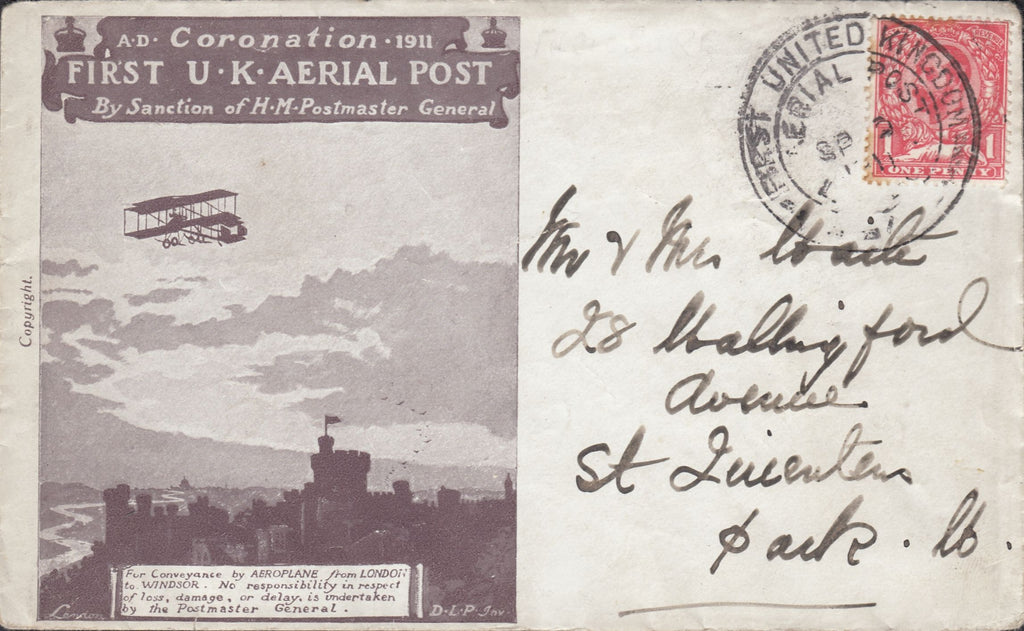 A·D· Coronation · 1911
FIRST U·K·AERIAL POST
By Sanction of H·M·Postmaster General
Copyright.
For Conveyance by AEROPLANE from LONDON
to WINDSOR. No responsibility in respect
of loss, damage, or delay, is undertaken
by the Postmaster General.
D·L·P·Inv.
FIRST UNITED KINGDOM
AERIAL POST
SP
REVENUE
1 1
ONE PENNY
Mr & Mrs
28 Wallingford
Avenue
St Quentin
Park. W.